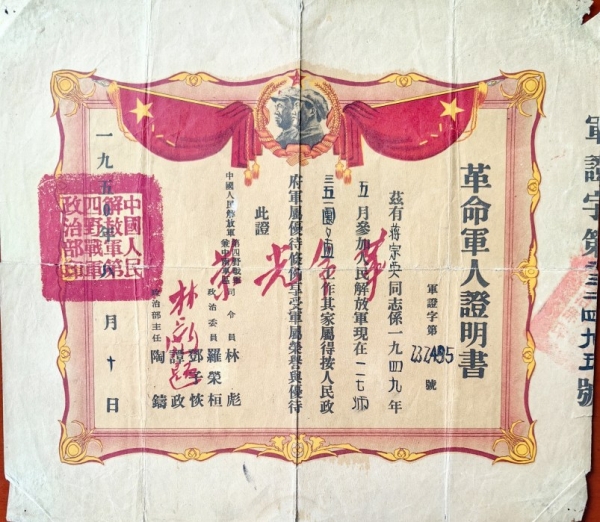 革命軍人證明書
軍證字第 232495 號
茲有蔣宗英同志係一九四九年
五月參加人民解放軍現在一二七師
三五二團 工作其家屬得按人民政
府軍屬優待條例享受軍屬榮譽與優待
此證
中國人民解放軍第四野戰軍
司令員 林彪
政治委員 羅榮桓
鄧子恢
譚政
政治部主任 陶鑄
一九五〇年 月十日
中國人民
解放軍第
四野戰軍
政治部印
光榮
軍證字第 二三二四九五號